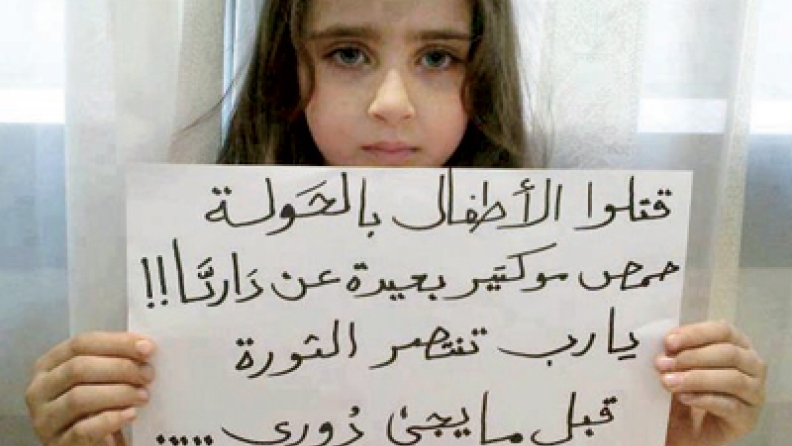 قتلوا الأطفال بالحَولة
حمص موكتير بعيدة عن دَاريَّا!!
يارب تنتصر الثورة
قبل مايجئ دُوري .....